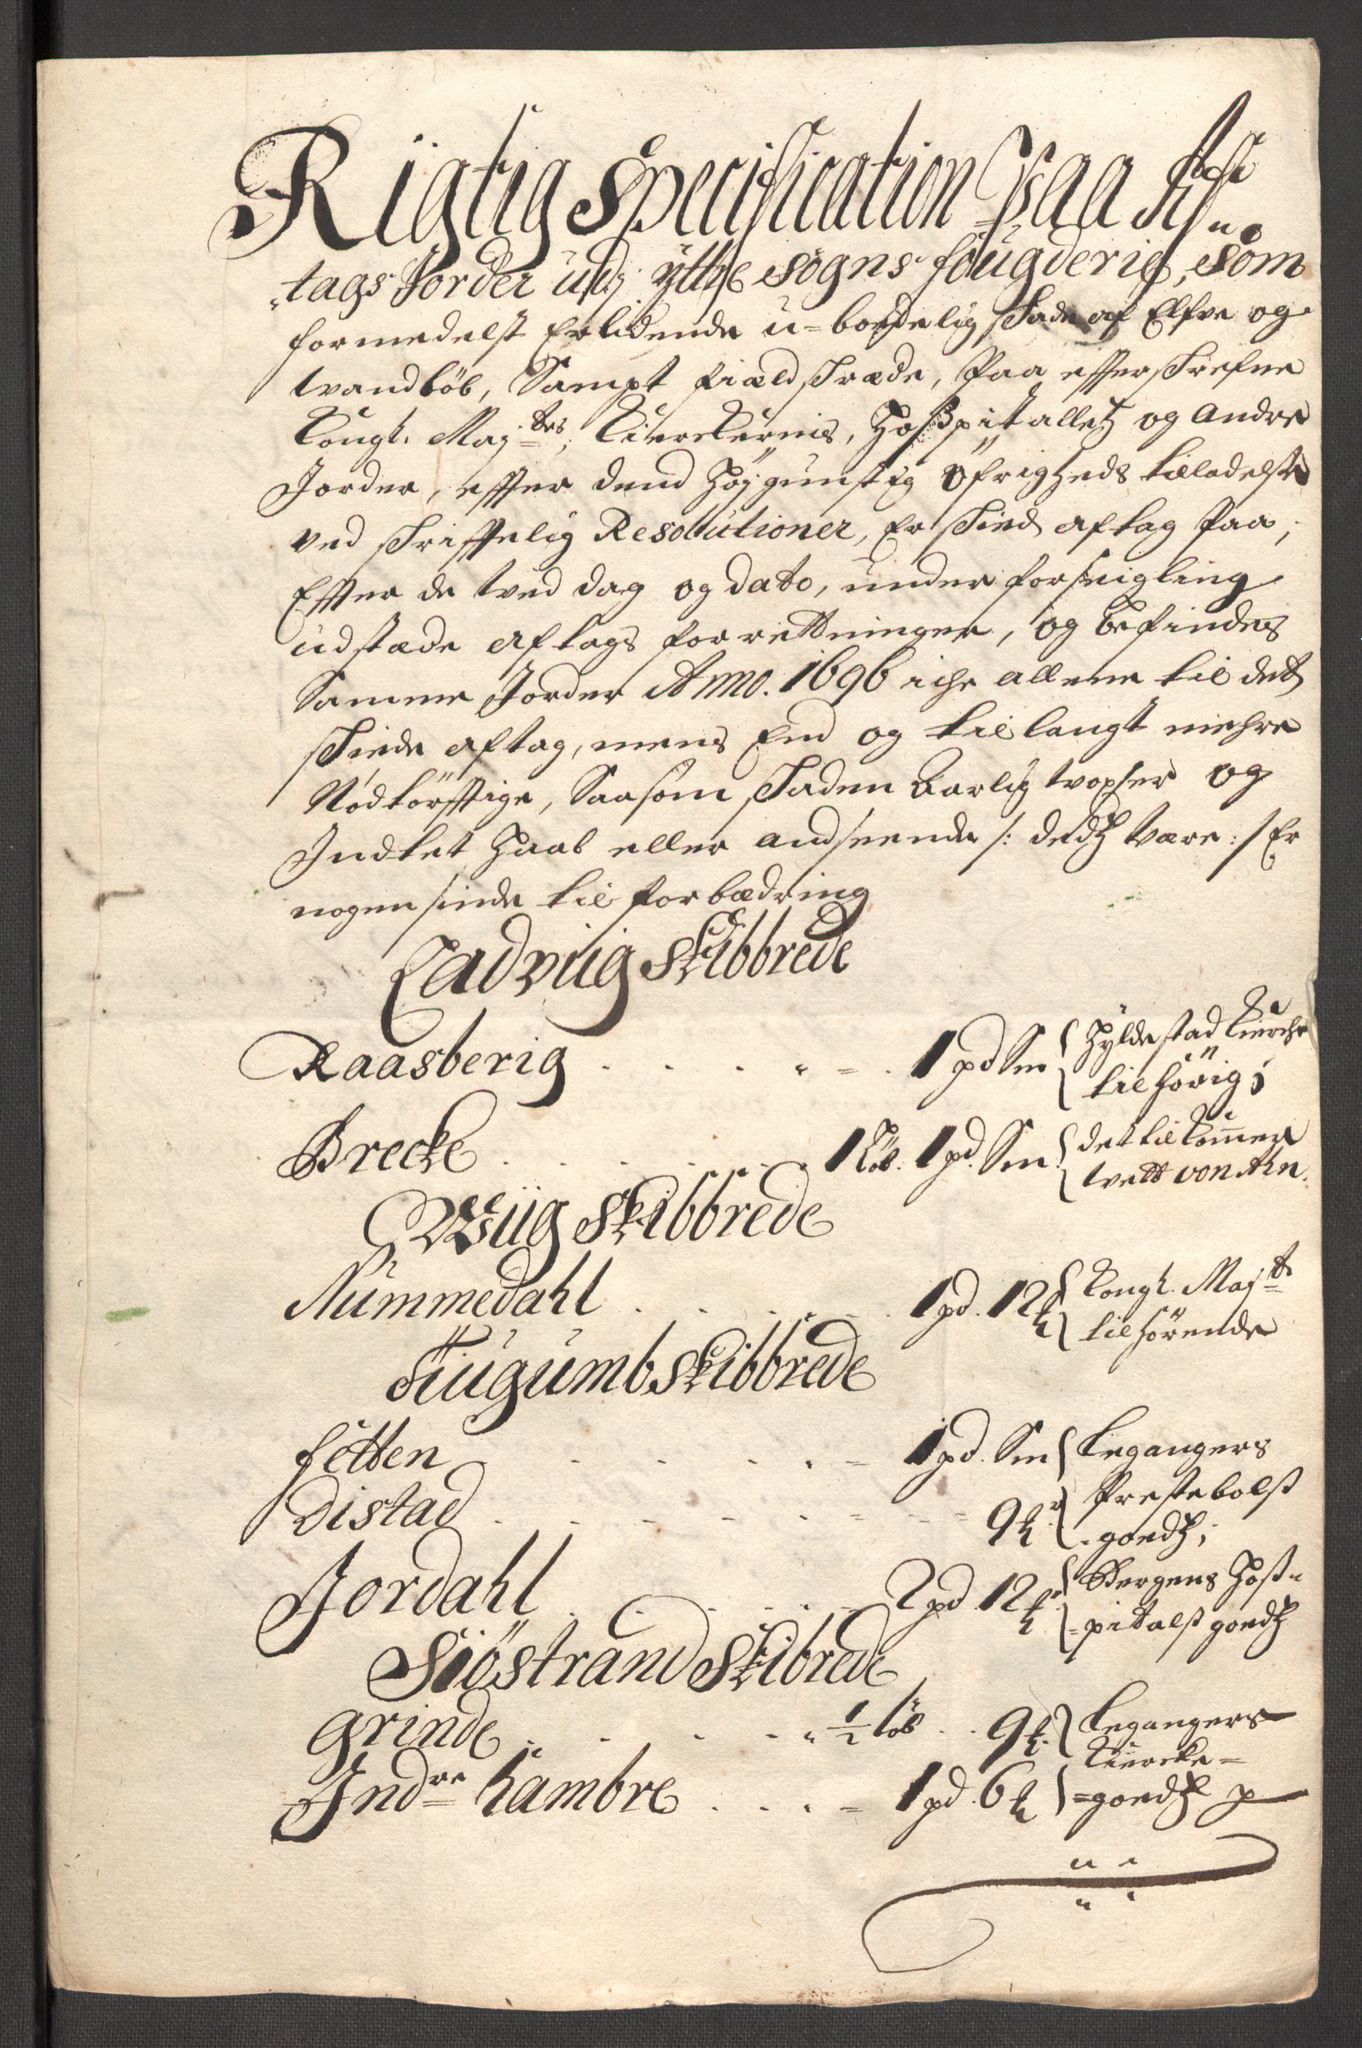 Rigtig Specification Paa Af„
„tags Jorder udj yttre Sogns fougderie, Som
formedelst Erlidende u-bodelig skade af Elfve og
wandløb, Sampt field skrede, Paa effterskrefne
Kongl. Maj:ttes, Kierkernis, Hosspitallet og andre
Jorder, effter dend høygunstig øfrigheds tilladelse
ved skrifftelig Resolutioner, Er skied aftag paa,
Effter de tved dag og dato, under forseigling
udstæde aftags forrettninger, og befindes
Samme Jorder Anno. 1696 iche allene til det
skiede aftag, mens End og til langt mehre
Nødtørfftige, Saasom skaden aarlig woxser og
Indtet haab eller andseende /: dedh være :/ Er
nogensinde til forbædring
Ladviig Skibbrede
Raasberig . . . . 1 pd Sm { Hyldestad Kierche
tilhørig;
Brecke . . . . 1 Løb. 1 pd. Sm { det tilkommer
von Ahn.
Wiig Skibbrede
Nummedahl . . . . 1 pd. 12 { Kongl. Maj:tt
tilhørende
Kugumb Skibbrede
fetten . . . . 1 pd. Sm { Leganger
Distad . . . . 9 { Prestebolss
goedh;
Jordahl . . . . 2 pd 12 { Bergens Hoss„
„pitalss goedh
Siøstrand Skibrede
Grinde . . . . ½ Løb . . 9 { Legangers
Kiercke=
Indre Hambre . . . . 1 pd. 6 } =goedh p